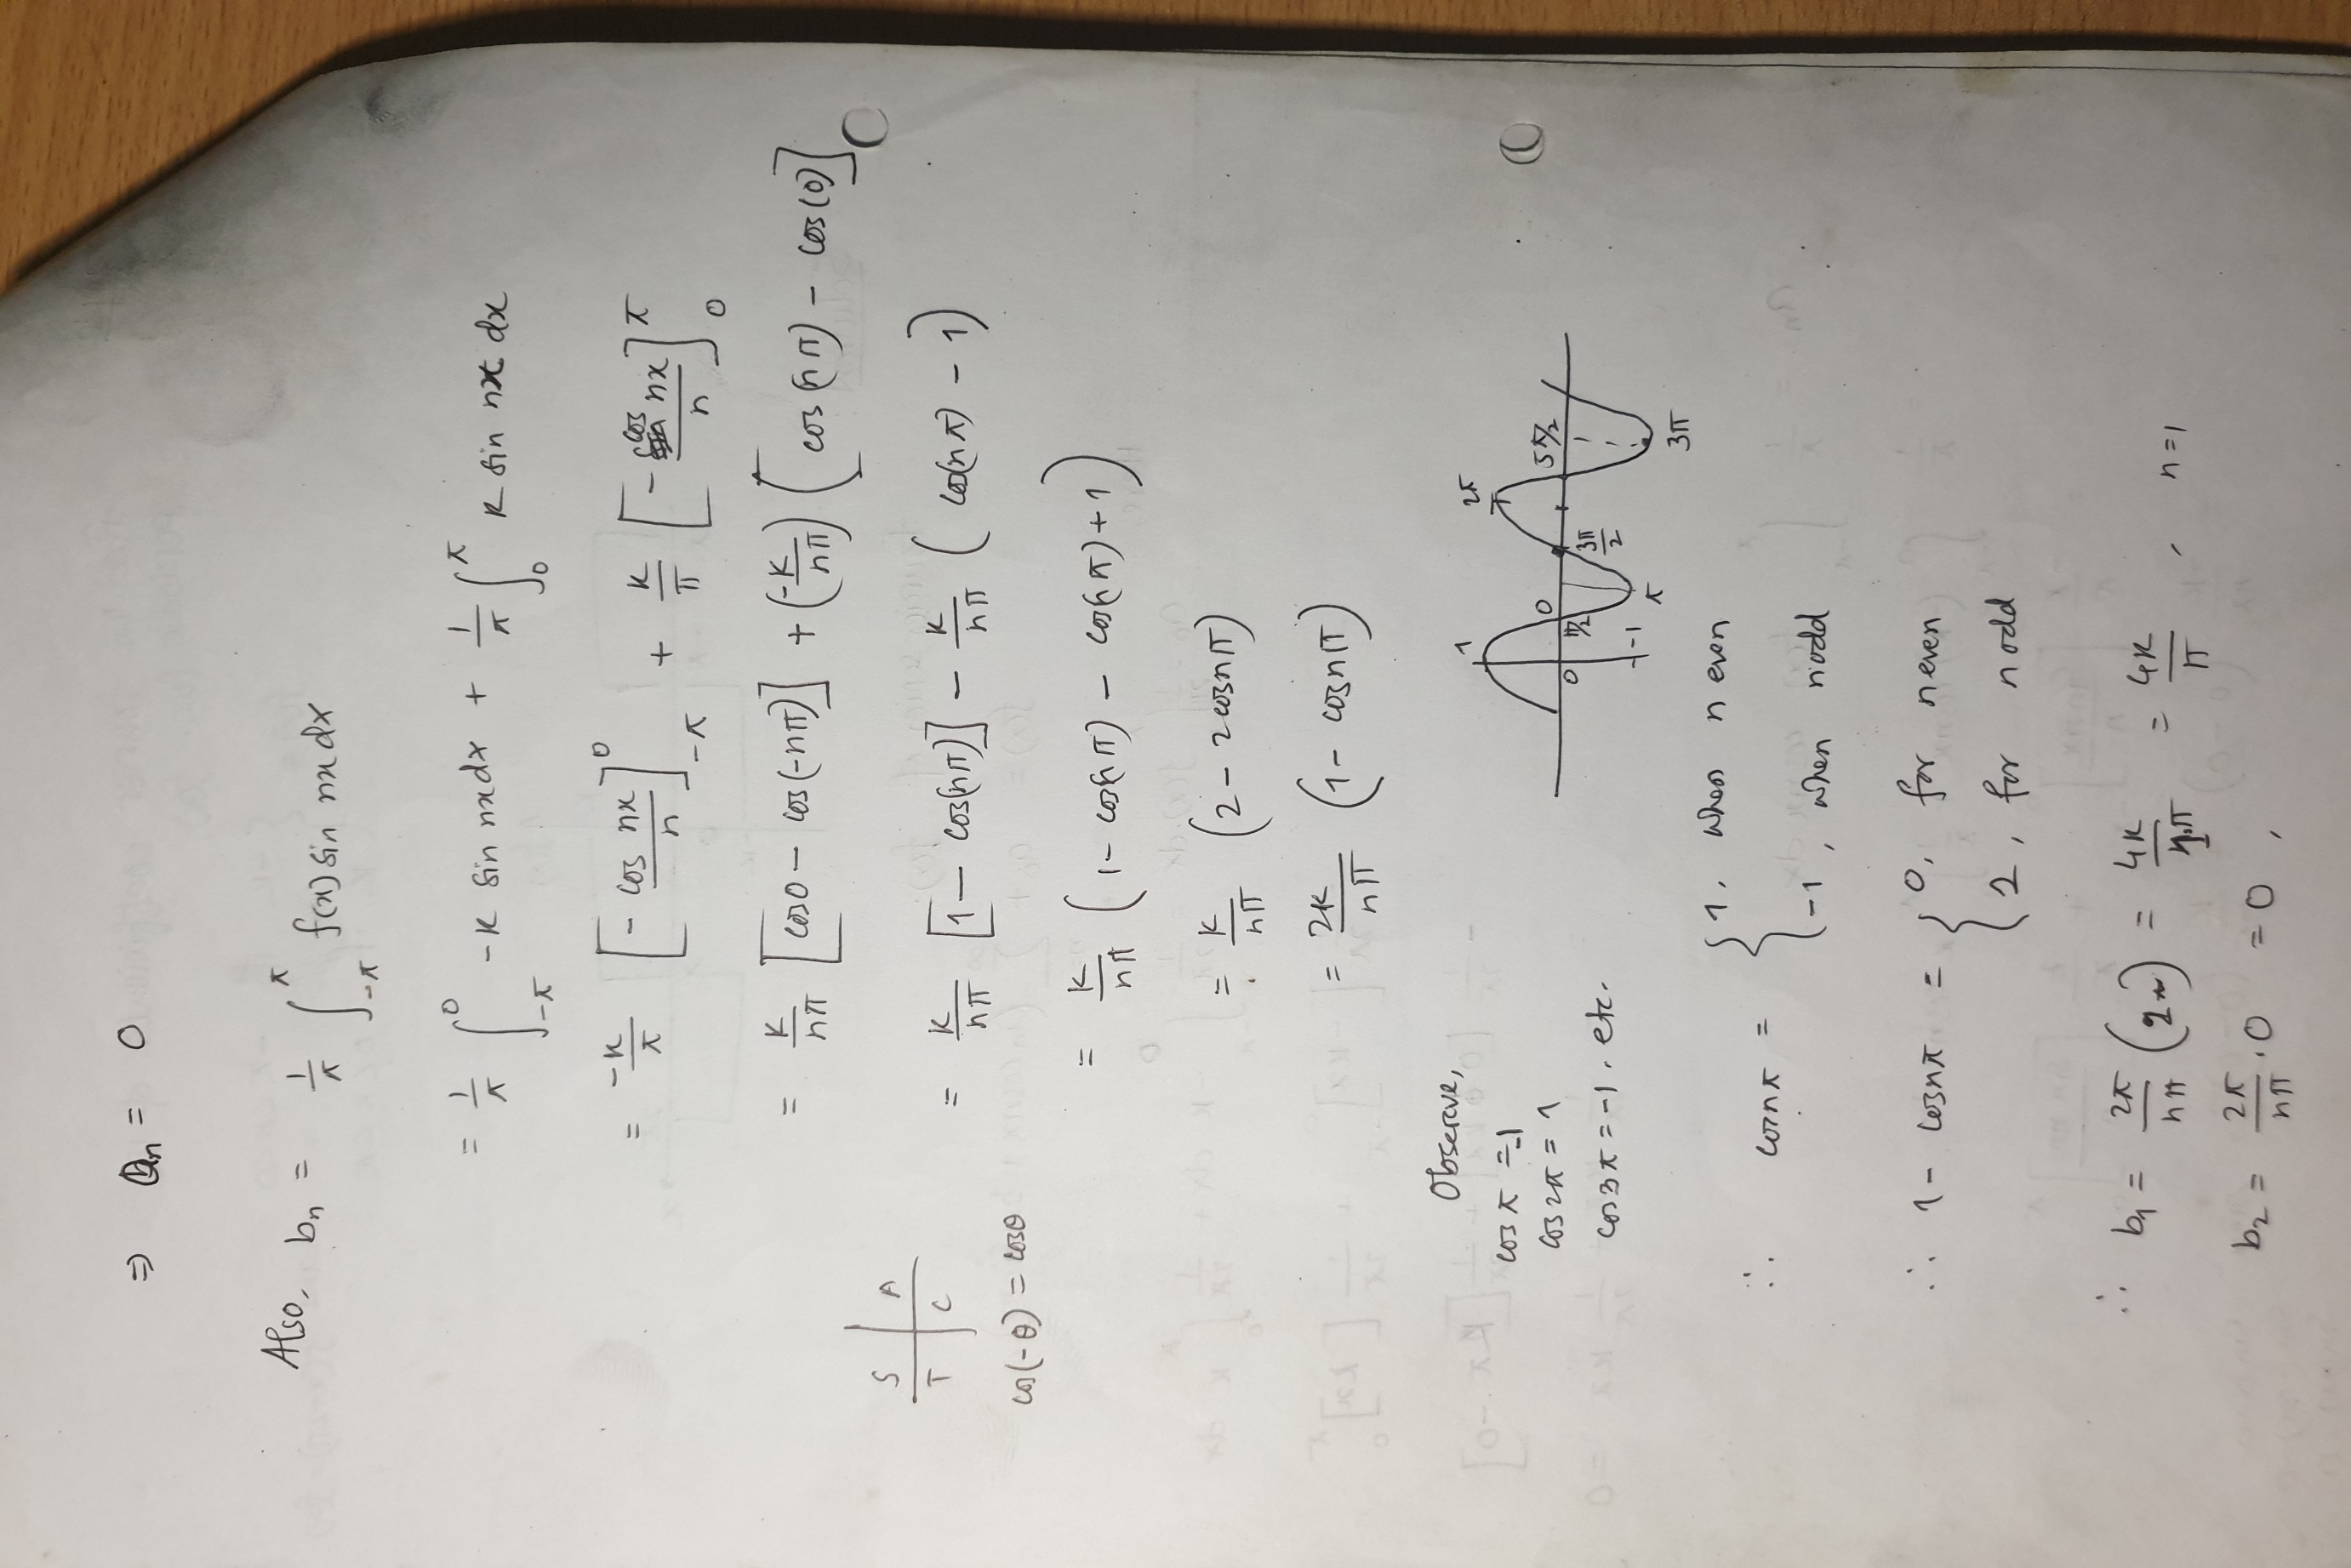 ⇒ aₙ = 0
Also, bₙ = 1/π ∫_{-π}^{π} f(x) sin nx dx
= 1/π ∫_{-π}^{0} -k sin nx dx + 1/π ∫_{0}^{π} k sin nx dx
= -k/π [- cos nx / n]_{-π}^{0} + k/π [- cos nx / n]_{0}^{π}
= k/nπ [cos0 - cos(-nπ)] + (-k/nπ) (cos(nπ) - cos(0)]
S A
T C
cos(-θ) = cosθ
= k/nπ [1 - cos(nπ)] - k/nπ (cos(nπ) - 1)
= k/nπ (1 - cos(nπ) - cos(nπ) + 1)
= k/nπ (2 - 2cosnπ)
= 2k/nπ (1 - cosnπ)
Observe,
cos π = -1
cos 2π = 1
cos 3π = -1, etc.
1 2π
0 π/2 0 3π/2 5π/2
-1 π 3π
∴ cosnπ = { 1, when n even
-1, when n odd
∴ 1 - cosnπ = { 0, for n even
2, for n odd
∴ b₁ = 2π/nπ (2) = 4k/nπ = 4k/π , n=1
b₂ = 2π/nπ . 0 = 0 ,